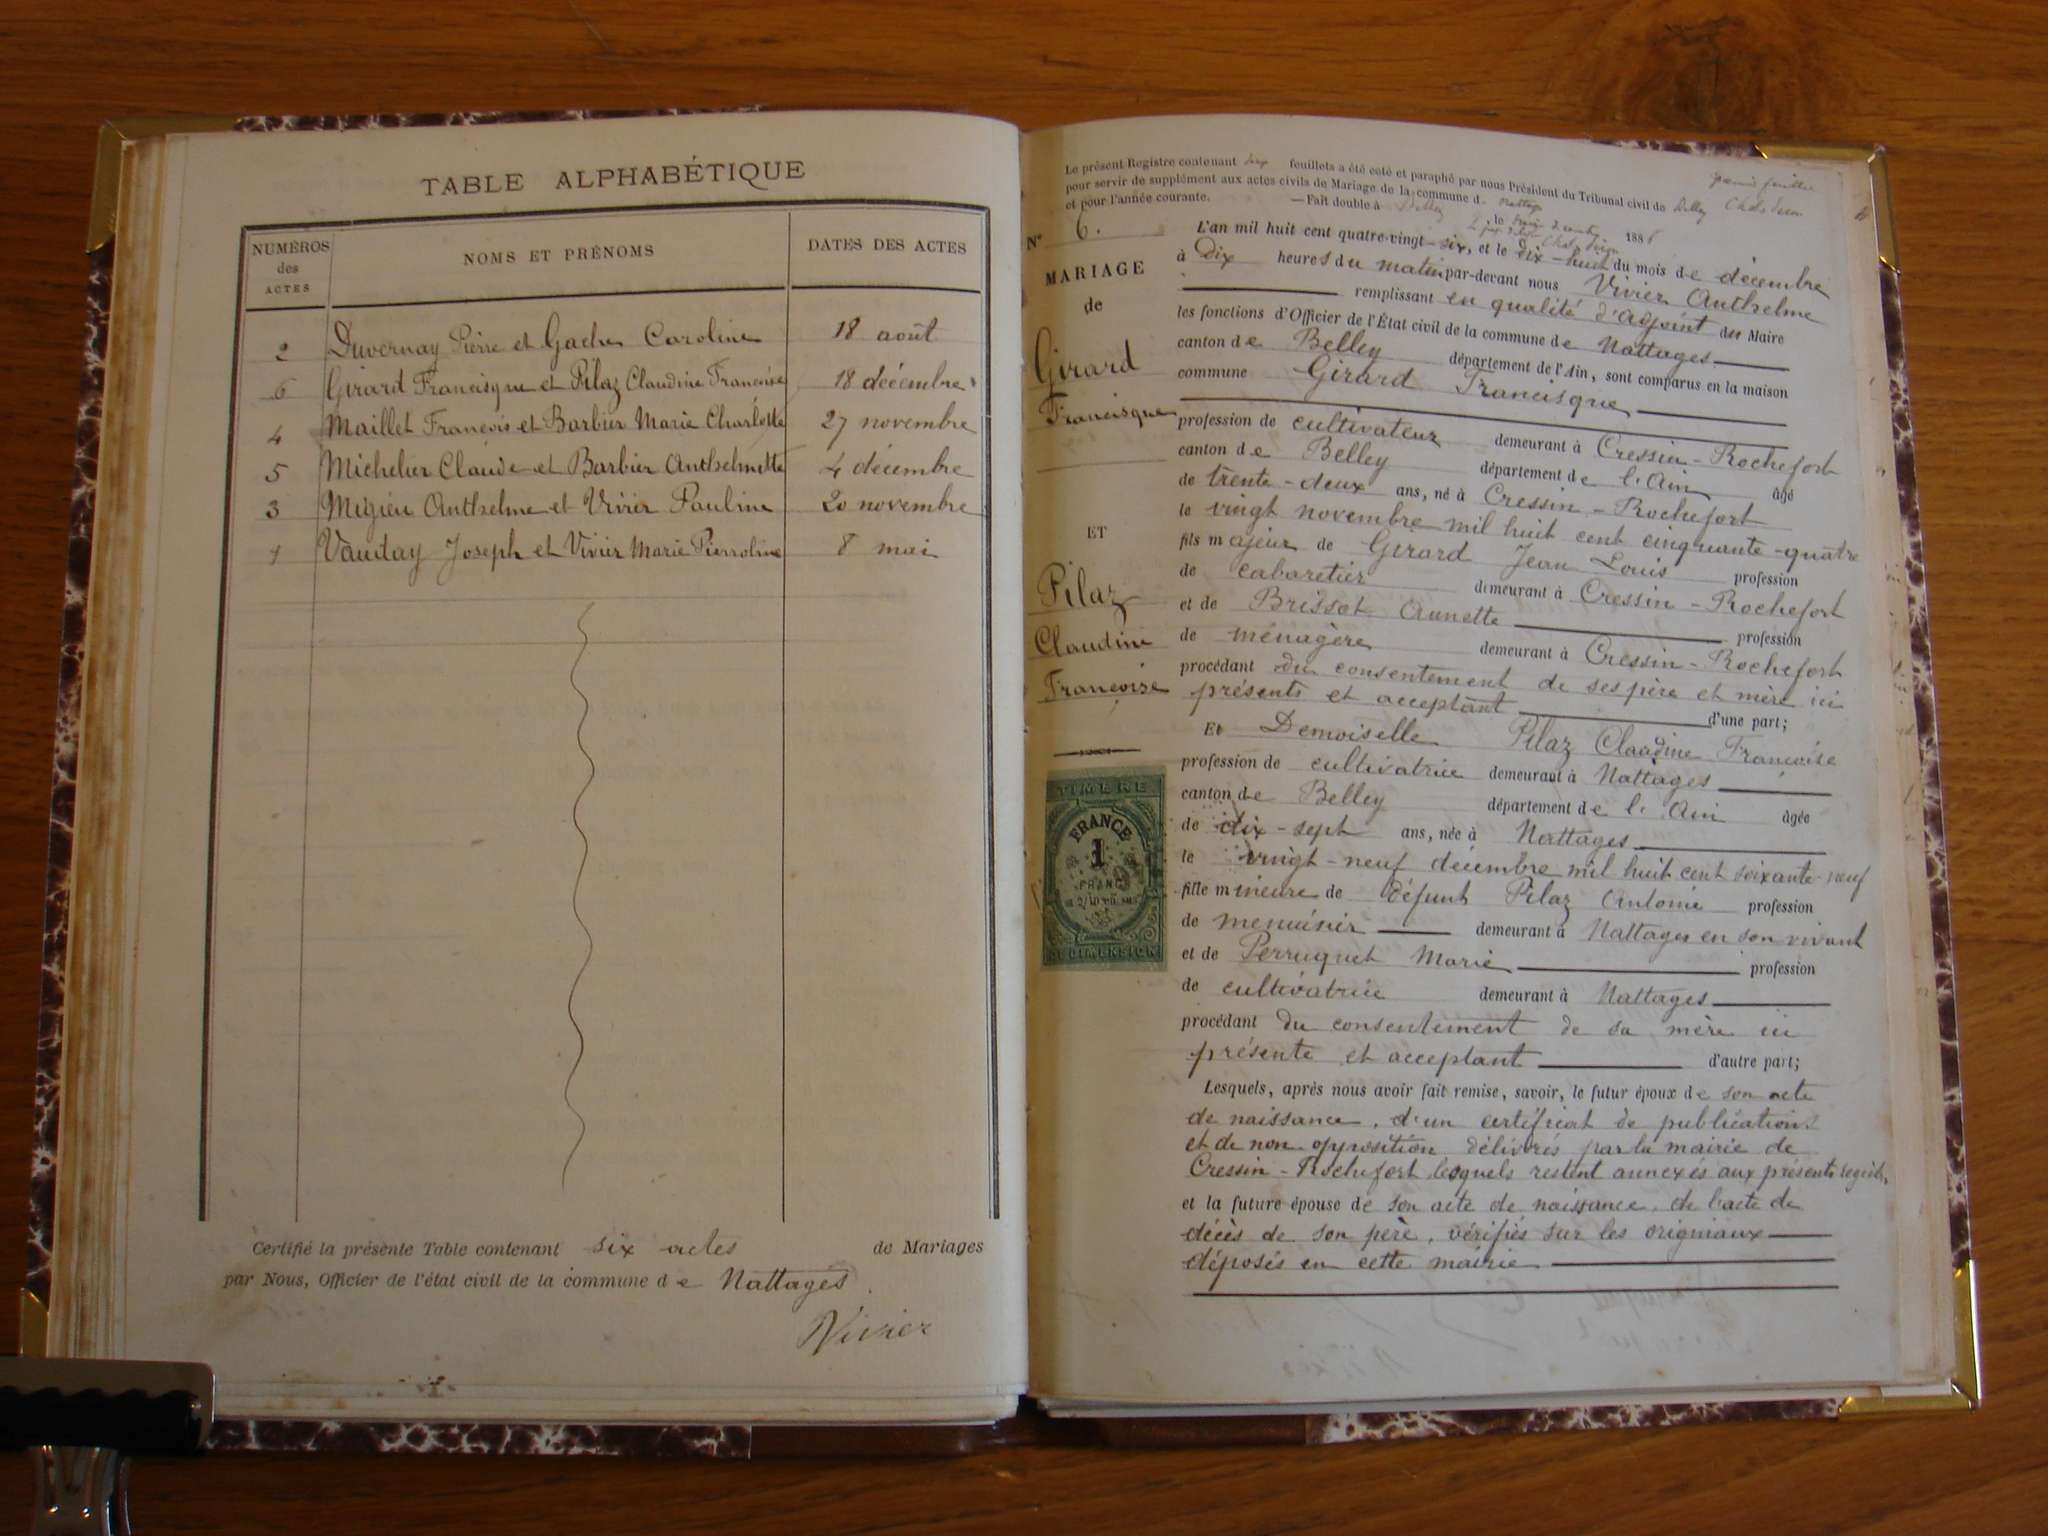 TABLE ALPHABÉTIQUE
NUMÉROS des ACTES
NOMS ET PRÉNOMS
DATES DES ACTES
2 Duvernay Pierre et Gache Caroline 18 août
6 Girard Francisque et Pilaz Claudine Francoise 18 décembre
4 Maillet Francois et Barbier Marie Charlotte 27 novembre
5 Michelier Claude et Barbier Anthelmette 4 décembre
3 Migieu Anthelme et Vivier Pauline 20 novembre
1 Vauday Joseph et Vivier Marie Pierroline 8 mai
Certifié la présente Table contenant six actes de Mariages
par Nous, Officier de l'état civil de la commune de Nattages
Vivier
Le présent Registre contenant feuillets a été coté et paraphé par nous Président du Tribunal civil de Belley
pour servir de supplément aux actes civils de Mariage de la commune d Nattages
et pour l'année courante. — Fait double à Belley, le 1886
N° 6.
MARIAGE
de
Girard
Francisque
ET
Pilaz
Claudine
Francoise
TIMBRE
FRANCE
1
FRANC
DIMENSION
L'an mil huit cent quatre-vingt-six, et le dix-huit du mois de décembre
à Dix heures du matin par-devant nous Vivier Anthelme
remplissant en qualité d'adjoint au Maire
les fonctions d'Officier de l'État civil de la commune de Nattages
canton de Belley département de l'Ain, sont comparus en la maison
commune Girard Francisque
profession de cultivateur demeurant à Cressin-Rochefort
canton de Belley département de l'Ain âgé
de trente-deux ans, né à Cressin-Rochefort
le vingt novembre mil huit cent cinquante-quatre
fils majeur de Girard Jean Louis profession
de cabaretier demeurant à Cressin-Rochefort
et de Brissot Annette profession
de ménagère demeurant à Cressin-Rochefort
procédant du consentement de ses père et mère ici
présents et acceptant d'une part;
Et Demoiselle Pilaz Claudine Francoise
profession de cultivatrice demeurant à Nattages
canton de Belley département de l'Ain âgée
de dix-sept ans, née à Nattages
le vingt-neuf décembre mil huit cent soixante-neuf
fille mineure de défunt Pilaz Antoine profession
de menuisier demeurant à Nattages en son vivant
et de Perruquet Marie profession
de cultivatrice demeurant à Nattages
procédant du consentement de sa mère ici
présente et acceptant d'autre part;
Lesquels, après nous avoir fait remise, savoir, le futur époux de son acte
de naissance, d'un certificat de publications
et de non opposition délivrés par la mairie de
Cressin-Rochefort lesquels restent annexés aux présents
et la future épouse de son acte de naissance, de l'acte de
décès de son père, vérifiés sur les originaux
déposés en cette mairie